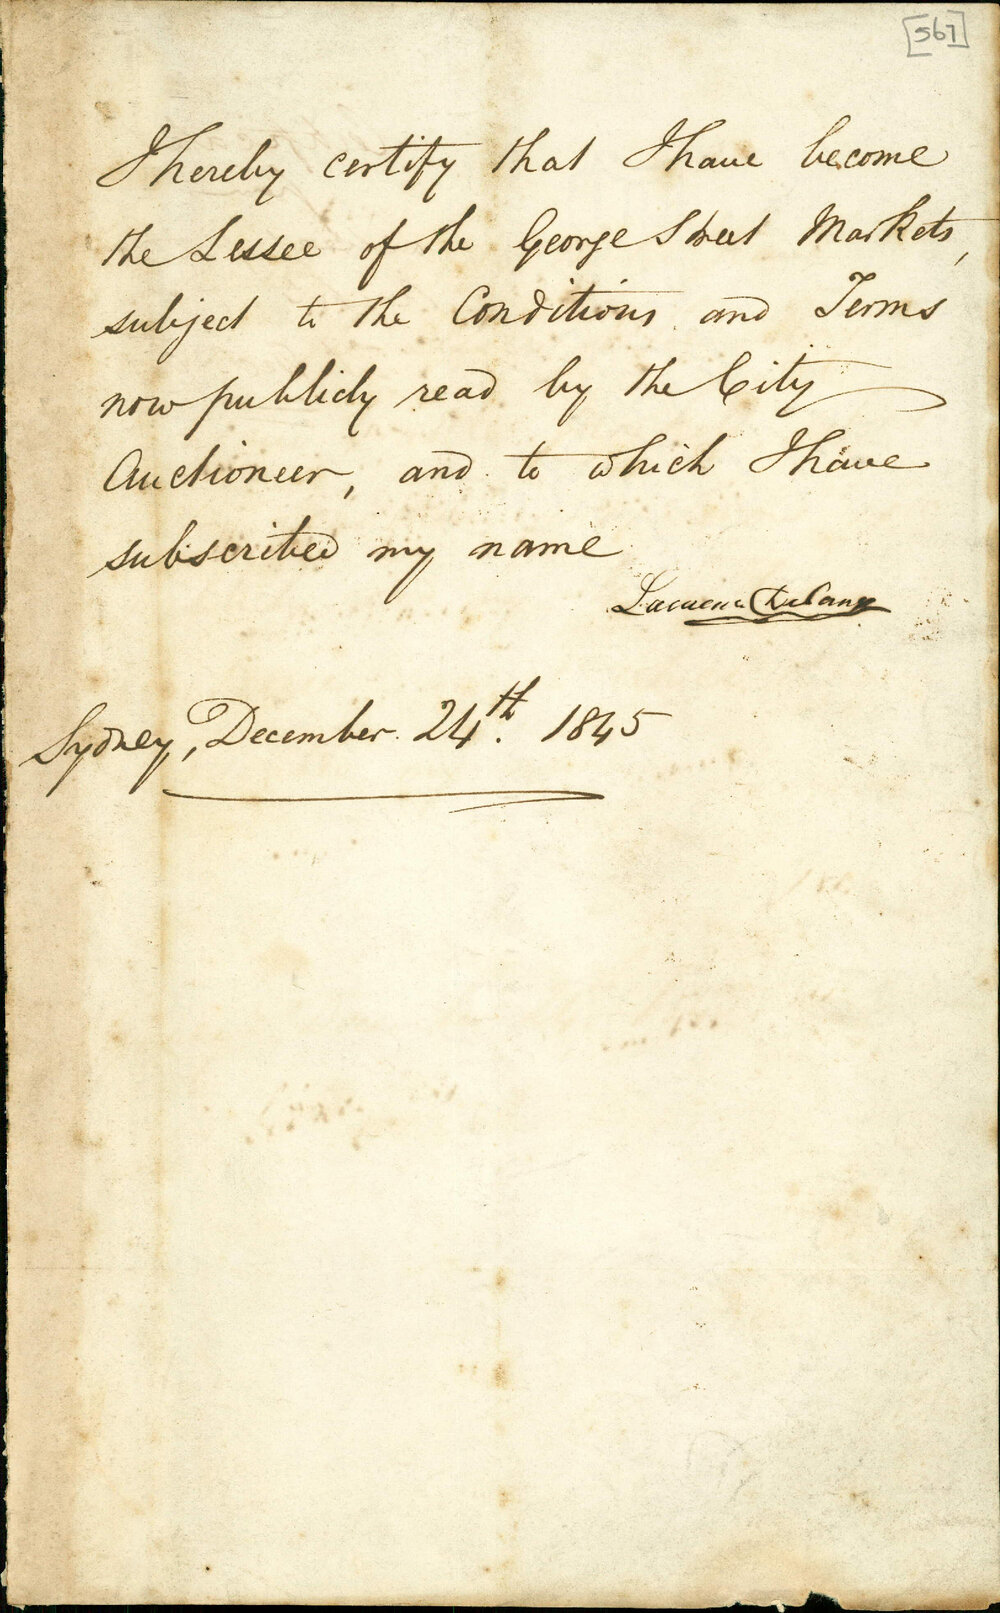 [567]
I hereby certify that I have become
the Lessee of the George Street Markets,
subject to the Conditions and Terms
now publicly read by the City
Auctioneer, and to which I have
subscribed my name
Sydney, December 24th. 1845